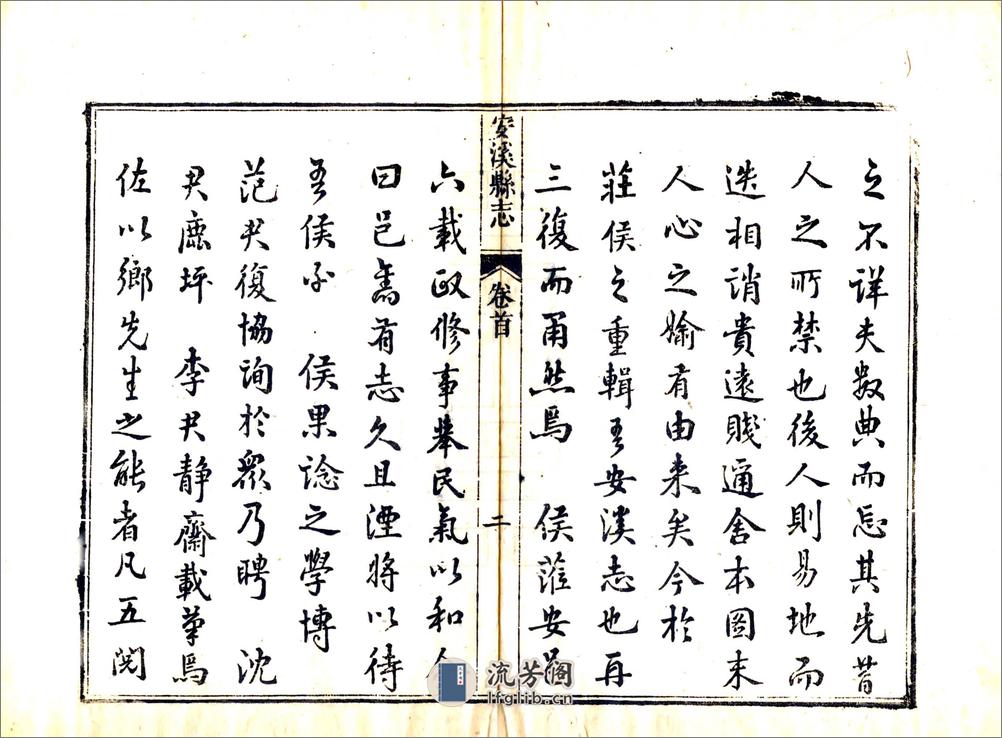 之不詳夫數典而忘其先昔
人之所禁也後人則易地而
迭相誚貴遠賤邇舍本圖末
人心之媮有由来矣今於
莊侯之重輯吾安溪志也再
三復而甫然焉 侯蒞安
安溪縣志
卷首
二
六載政修事舉民氣以和人
曰邑舊有志久且湮將以待
吾侯乎 侯果諗之學博
范尹復協詢於眾乃聘 沈
尹鹿坪 李尹靜齋載筆焉
佐以鄉先生之能者凡五閱
流芳阁
lfglib.cn